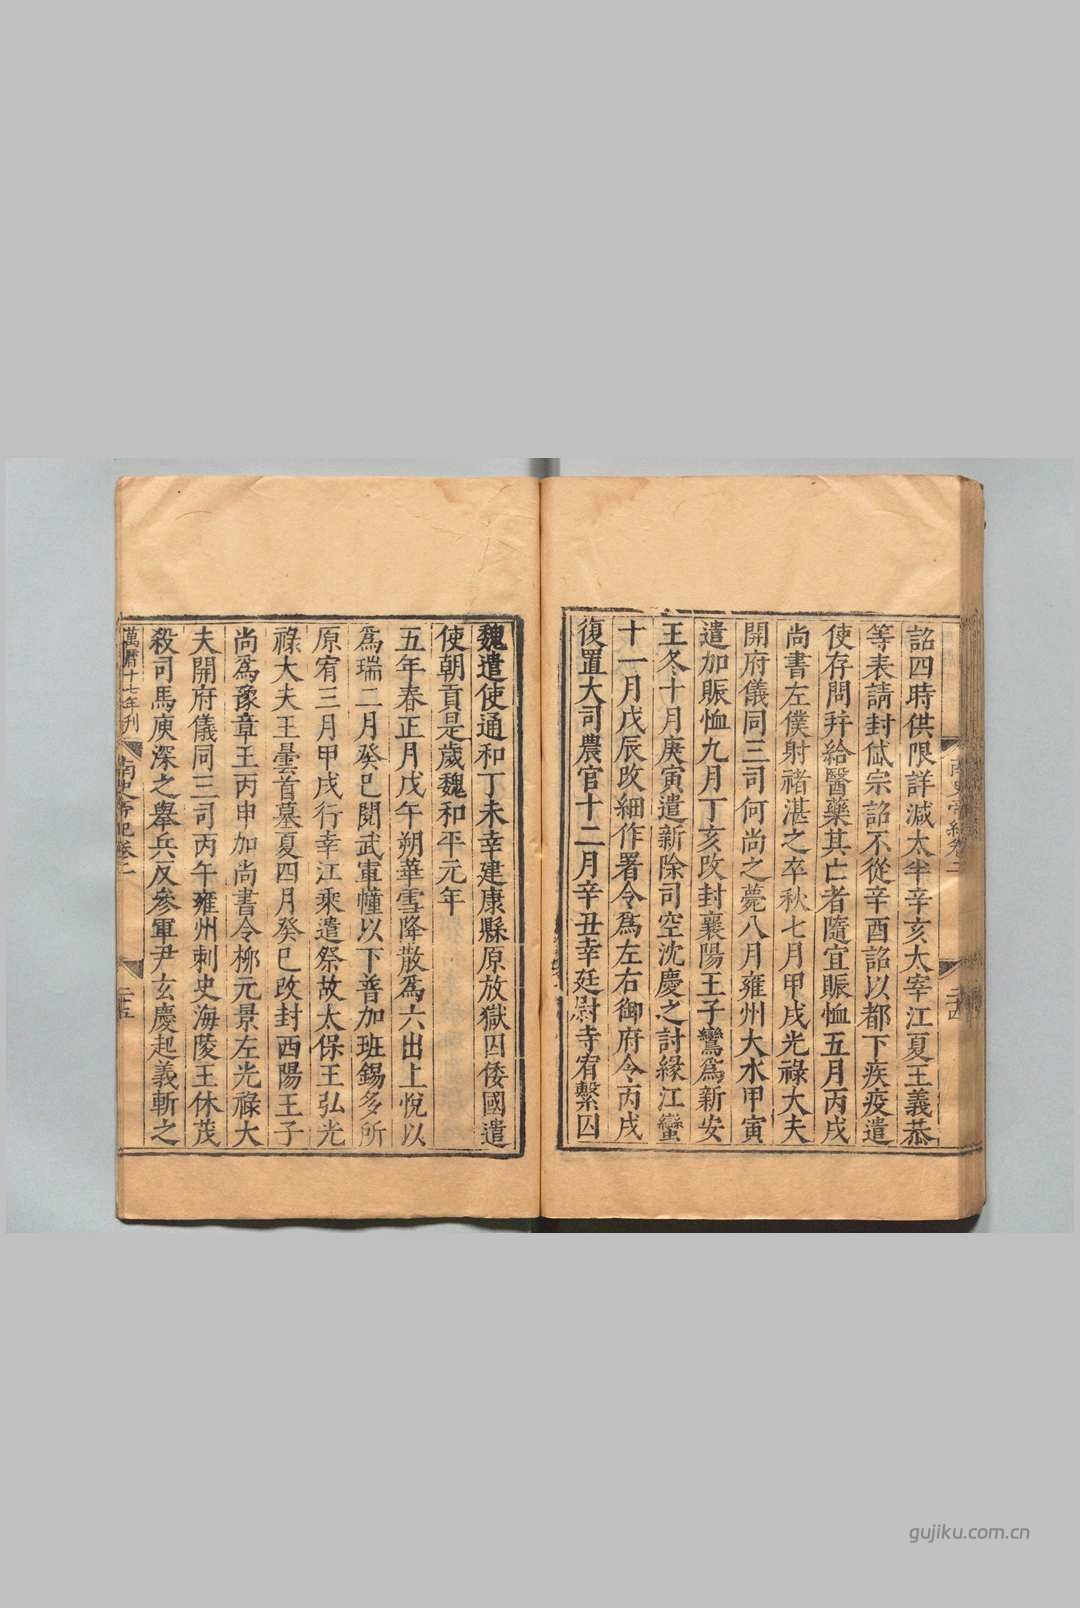 詔四時供限詳減太半辛亥大宰江夏王義恭
等表請封岱宗詔不從辛酉詔以都下疾疫遣
使存問幷給醫藥其亡者隨宜賑恤五月丙戌
尚書左僕射褚湛之卒秋七月甲戌光祿大夫
開府儀同三司何尚之薨八月雍州大水甲寅
遣加賑恤九月丁亥改封襄陽王子鸞爲新安
王冬十月庚寅遣新除司空沈慶之討緣江蠻
十一月戊辰改細作署令爲左右御府令丙戌
復置大司農官十二月辛丑幸廷尉寺宥繫囚
魏遣使通和丁未幸建康縣原放獄囚倭國遣
使朝貢是歲魏和平元年
五年春正月戊午朔華雪降散爲六出上悅以
爲瑞二月癸巳閱武軍幢以下普加班錫多所
原宥三月甲戌行幸江乘遣祭故太保王弘光
祿大夫王曇首墓夏四月癸巳改封西陽王子
尚爲豫章王丙申加尚書令柳元景左光祿大
夫開府儀同三司丙午雍州刺史海陵王休茂
殺司馬庾深之舉兵反參軍尹玄慶起義斬之
萬曆十七年刊
南史帝紀卷二
二十五
gujiku.com.cn